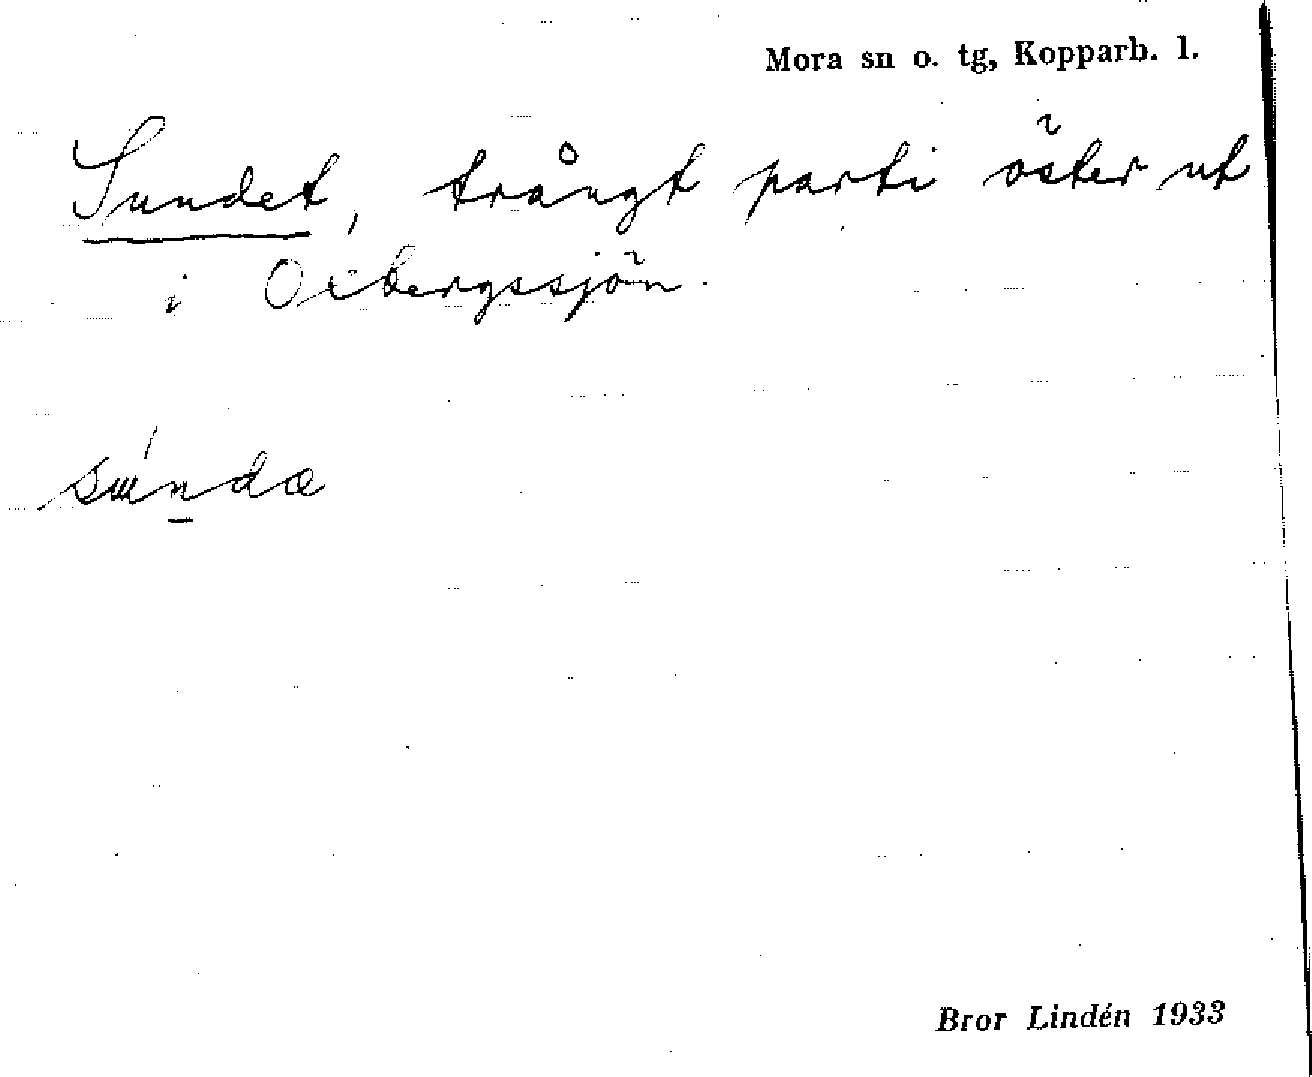 Mora sn o. tg, Kopparb. l.
Sundet, trångt parti öster ut
i Oxbergssjön.
Bror Lindén 1933